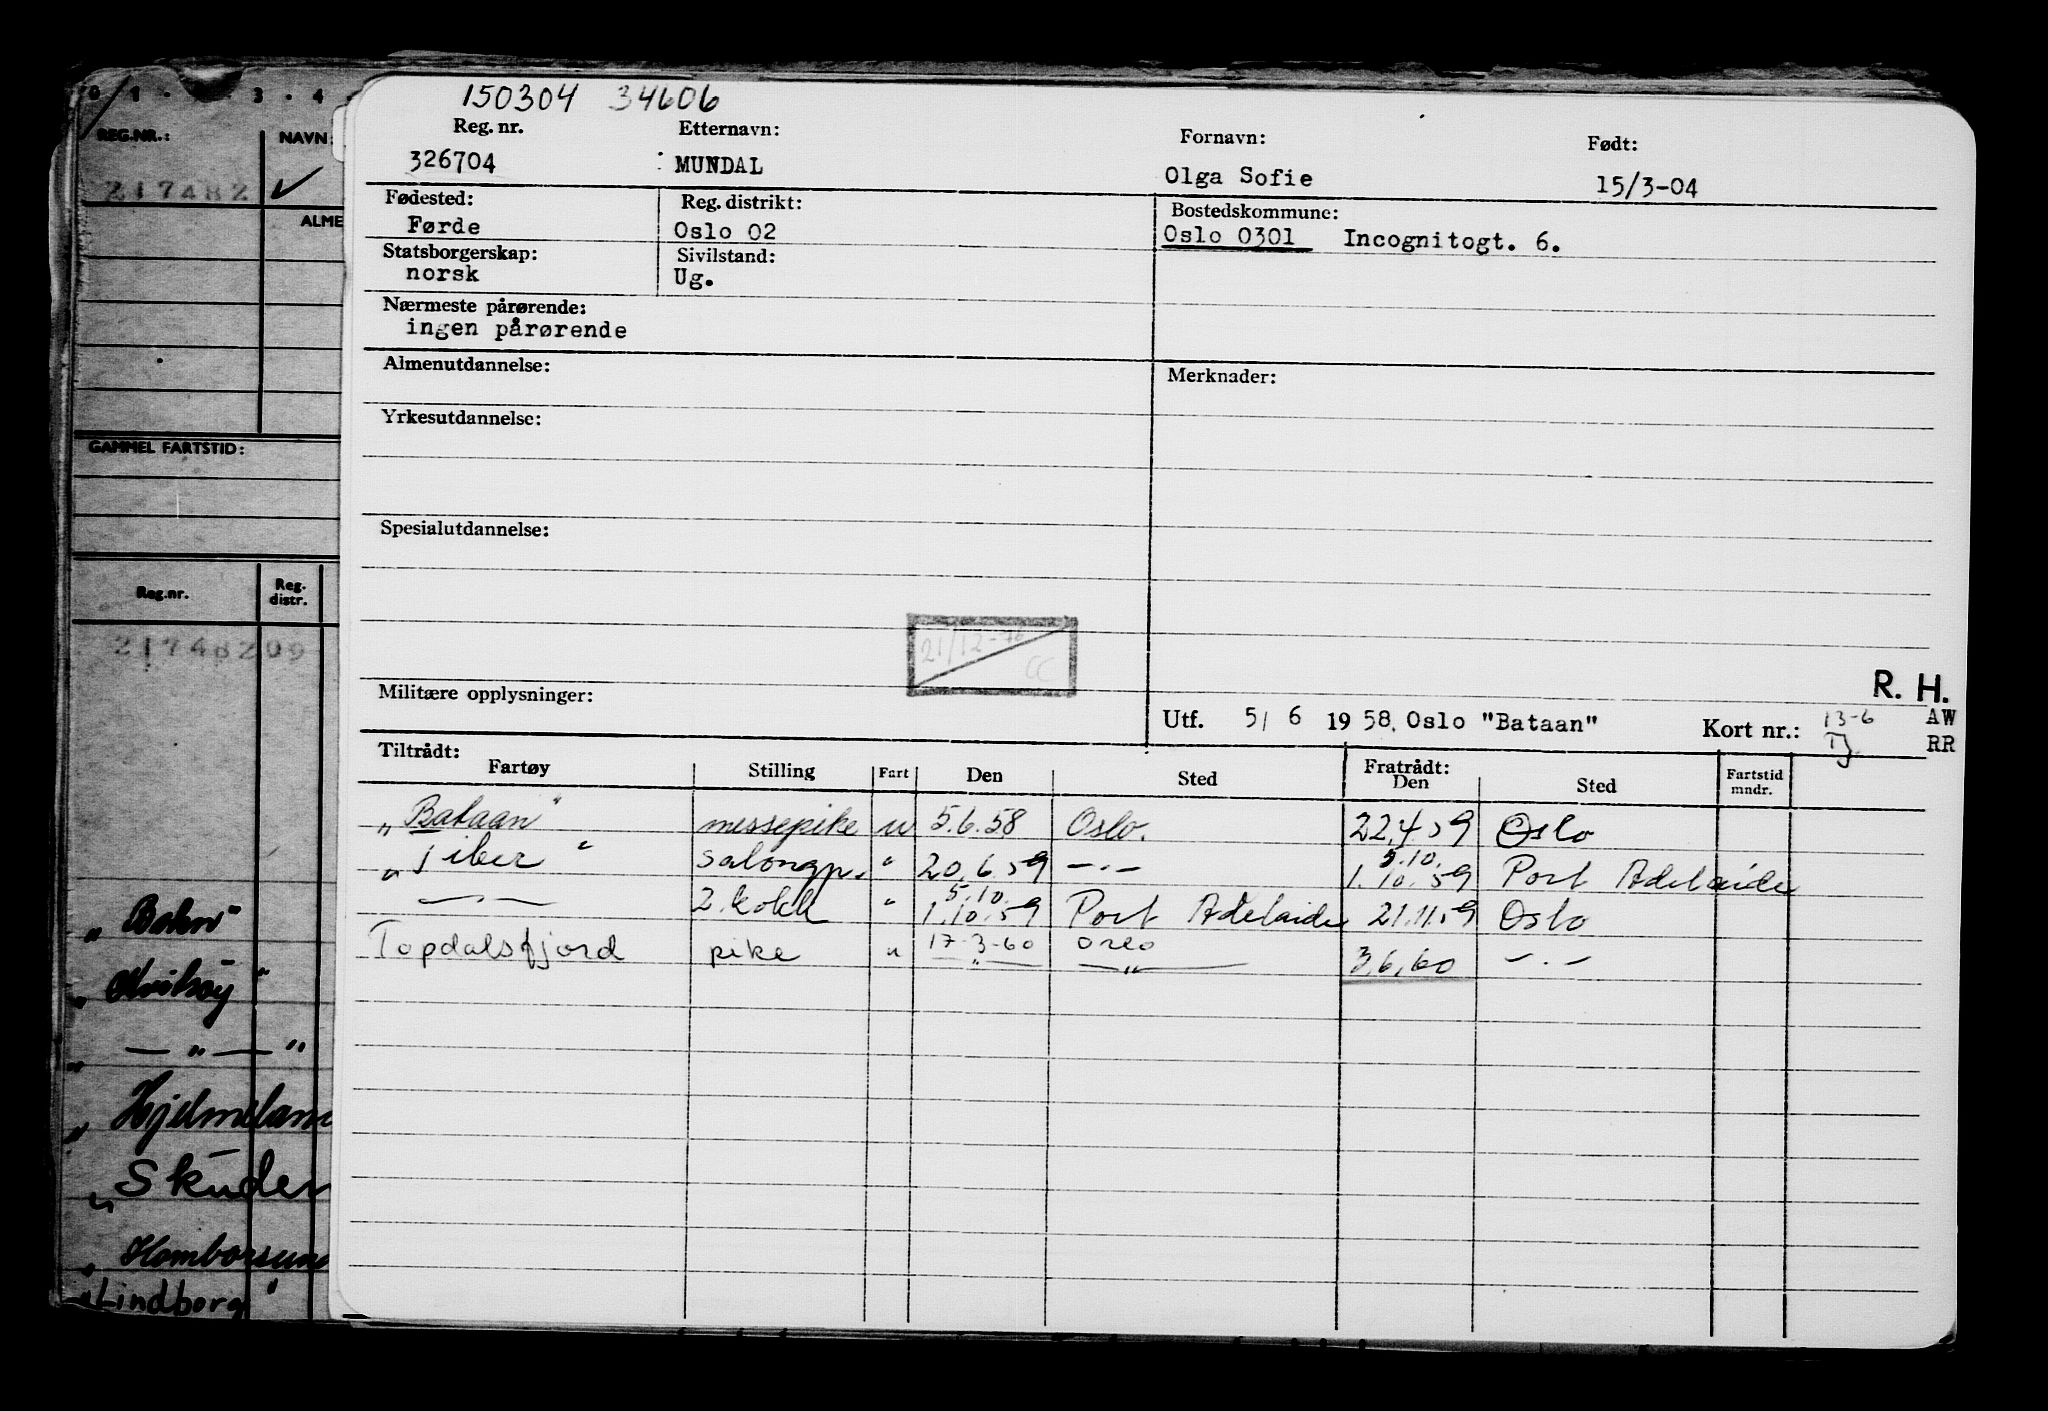 0 1 · 3 · 4
REG.NR.: NAVN:
217482 ✓
ALME
GAMMEL FARTSTID:
Reg.nr. Reg. distr.
21748209
„ Bohn"
„ "
„ — „ — "
„ Hjelmelan
„ Skuder
„ Homborsun
„Lindborg"
150304 34606
Reg. nr. Etternavn: Fornavn: Født:
326704 MUNDAL Olga Sofie 15/3-04
Fødested: Reg. distrikt: Bostedskommune:
Førde Oslo 02 Oslo 0301 Incognitogt. 6.
Statsborgerskap: Sivilstand:
norsk Ug.
Nærmeste pårørende:
ingen pårørende
Almenutdannelse: Merknader:
Yrkesutdannelse:
Spesialutdannelse:
21/12-
CC
Militære opplysninger: R. H.
Utf. 5/ 6 1958, Oslo "Bataan" Kort nr.: 13-6 AW
RR
Tiltrådt: Fratrådt:
Fartøy Stilling Fart Den Sted Den Sted Fartstid mndr.
„ Bataan" messepike u 5.6.58 Oslo. 22.4.59 Oslo
„ Tiber " salongp. " 20.6.59 —·— 5.10. 1.10.59 Port Adelaide
—··— 2. kokk " 5.10. 1.10.59 Port Adelaide 21.11.59 Oslo
Topdalsfjord pike u 17-3-60 Oslo 3.6.60 —·—
—„— —„—